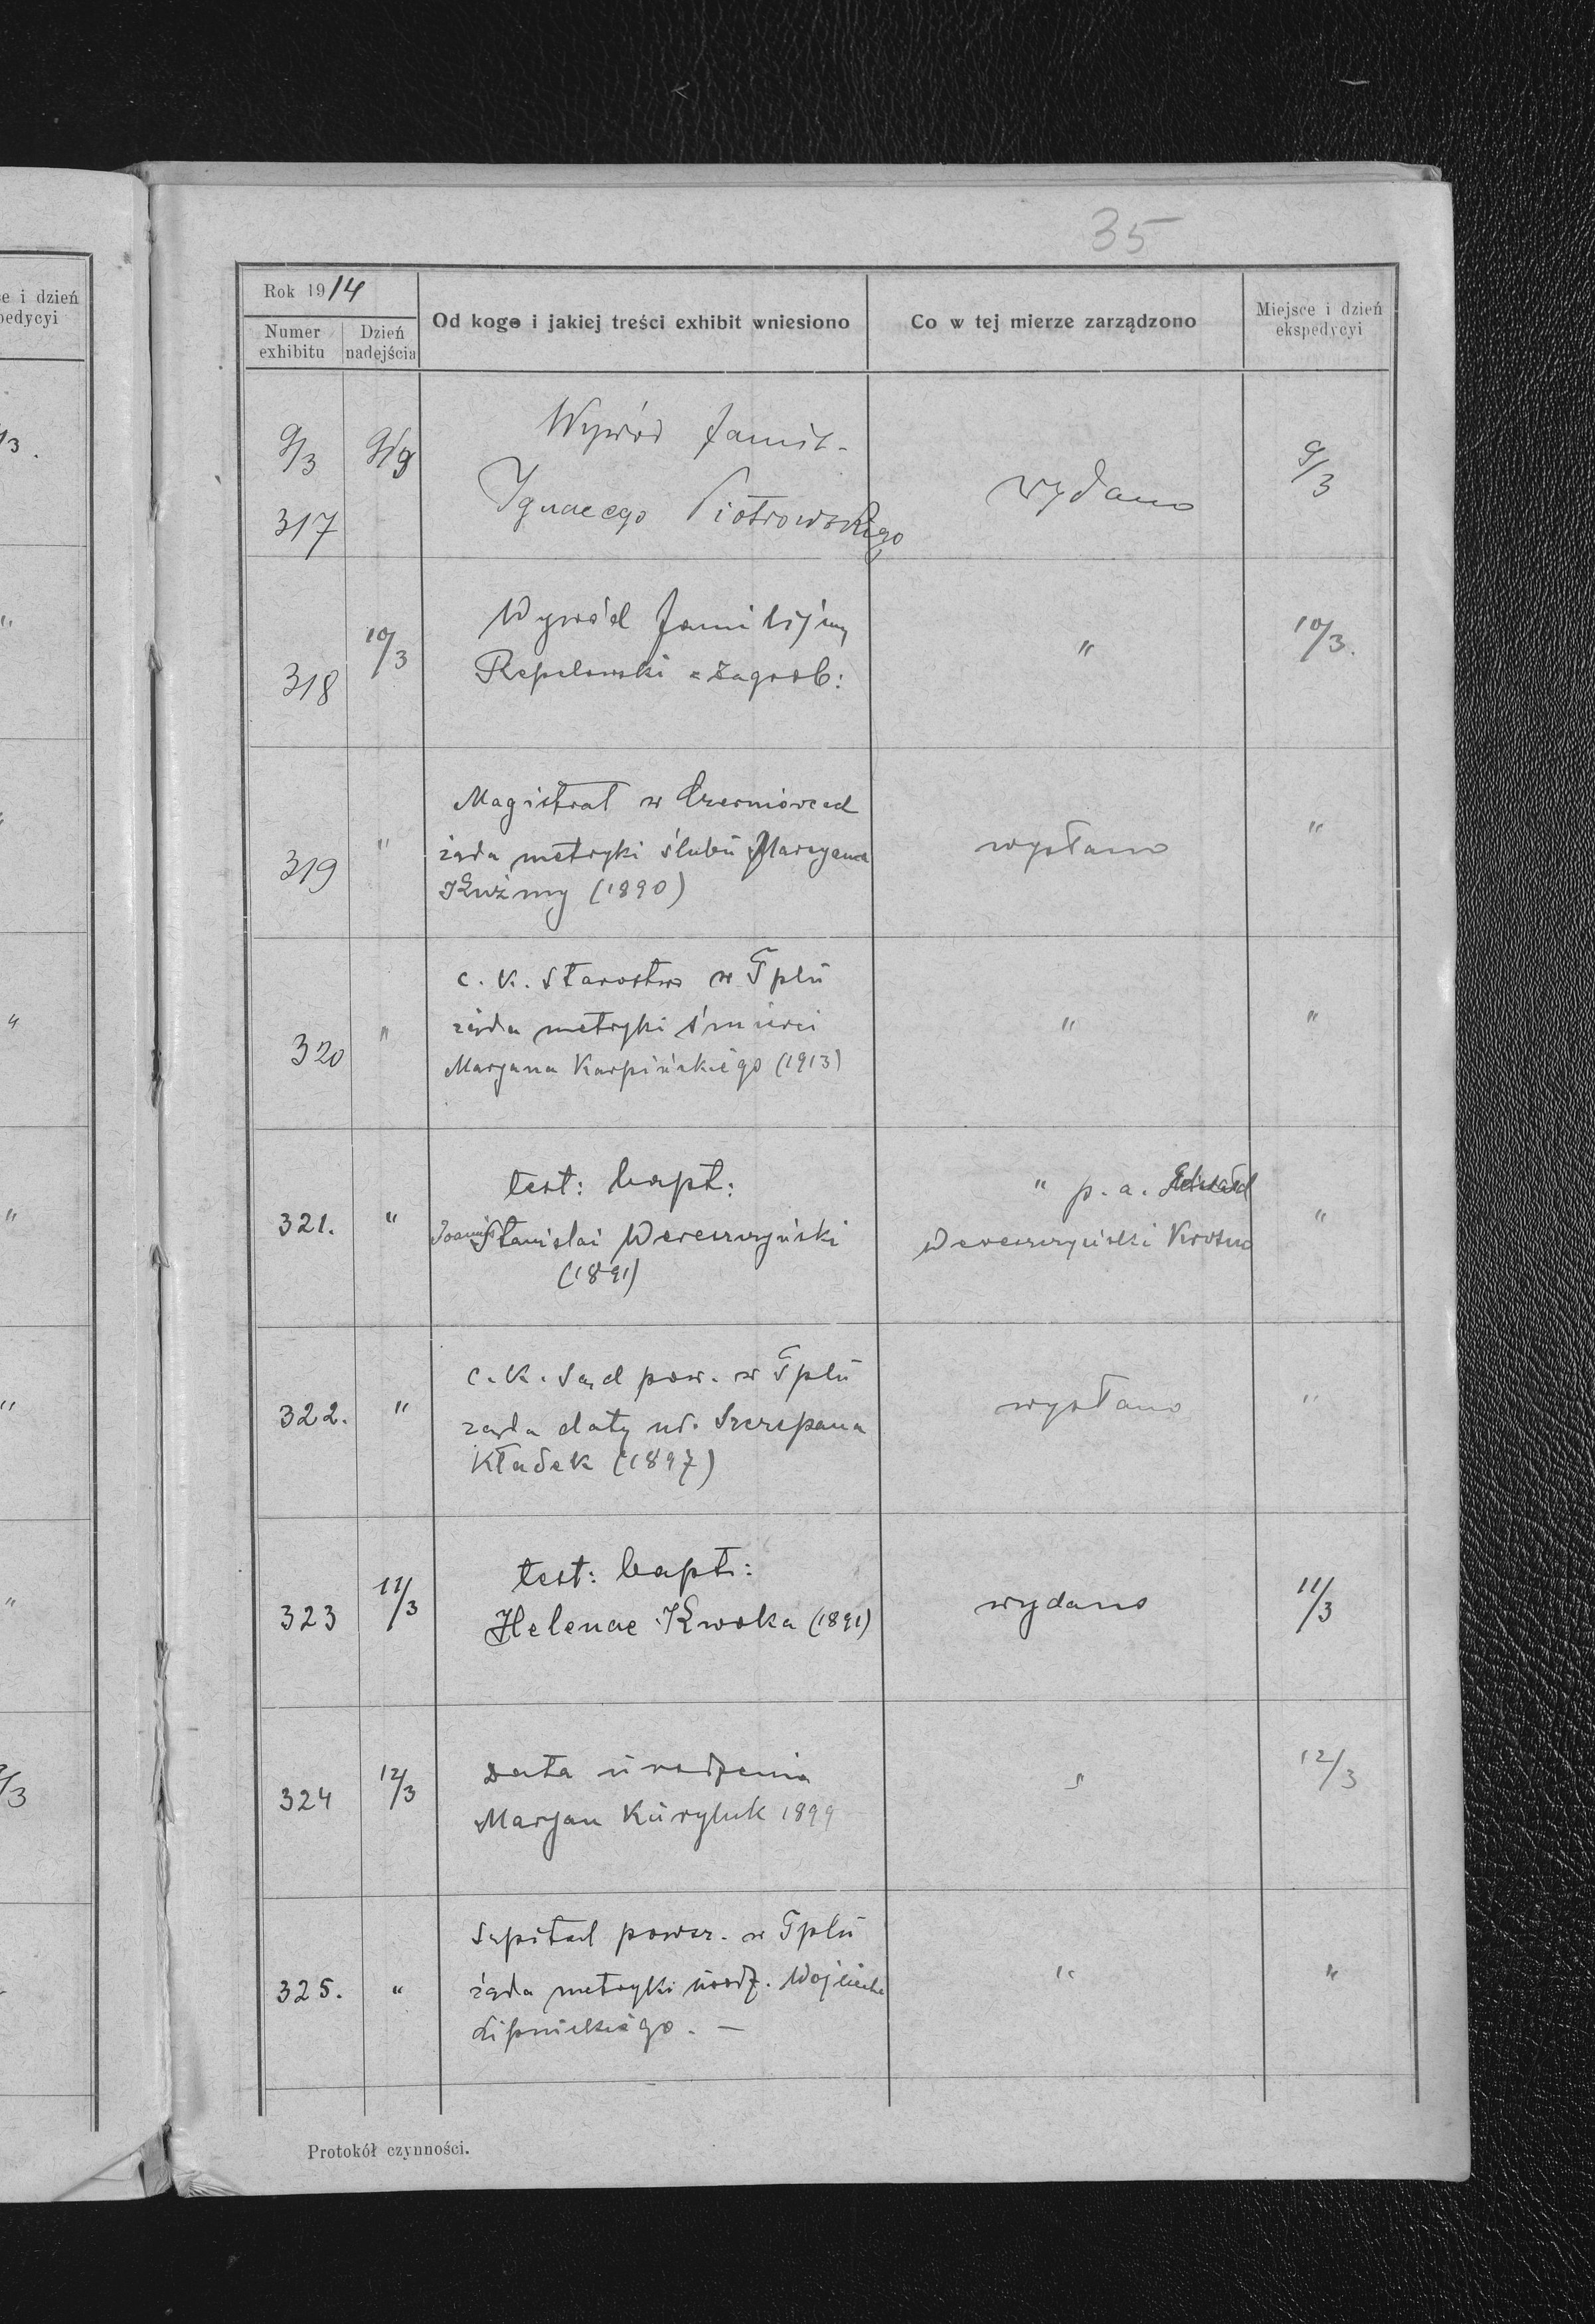 35
Rok 1914
Numer exhibitu
Dzień nadejścia
Od kogo i jakiej treści exhibit wniesiono
Co w tej mierze zarządzono
Miejsce i dzień ekspedycyi
e i dzień
pedycyi
9/3
317
Wywód famil-
Ignacego Piotrowskiego
wydano
9/3
318
10/3
Wywód familijny
Repelowski = Zagrob:
"
10/3.
319
"
Magistrat w
żąda metryki ślubu Maryana
Kuźmy (1890)
wysłano
"
320
"
c. k. Starostwo w Tplu
żąda metryki śmierci
Maryana Karpińskiego (1913)
"
"
321.
"
test: bapt:
Joannis Stanislai Wereszczyński
(1891)
" p. a.
Wereszczyński Krosno
"
322.
"
c. k. Sąd pow. w Tplu
żąda daty ur. Szczepana
Kładek (1897)
wysłano
"
323
11/3
test: bapt:
Helenae Kwoka (1891)
wydano
11/3
324
12/3
Data urodzenia
Maryan Kuryluk 1899
"
12/3
325.
"
Szpital powsz. w Tplu
żąda metryki urodz. Wojciecha
Lipnickiego. —
"
"
Protokół czynności.